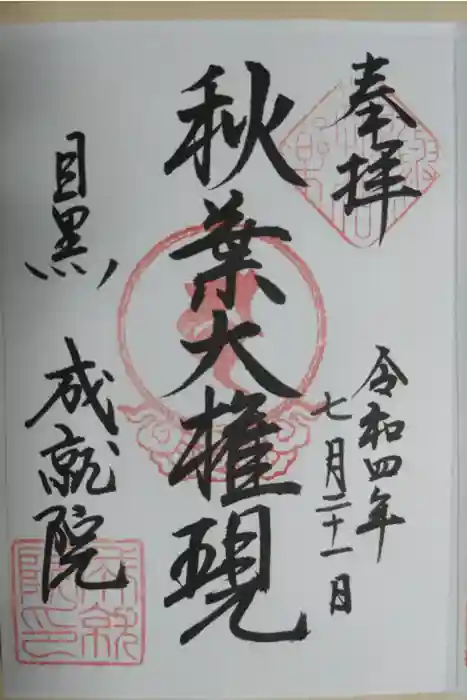 奉拝
令和四年
七月二十一日
秋葉大権現
目黒
成就院
成就院印